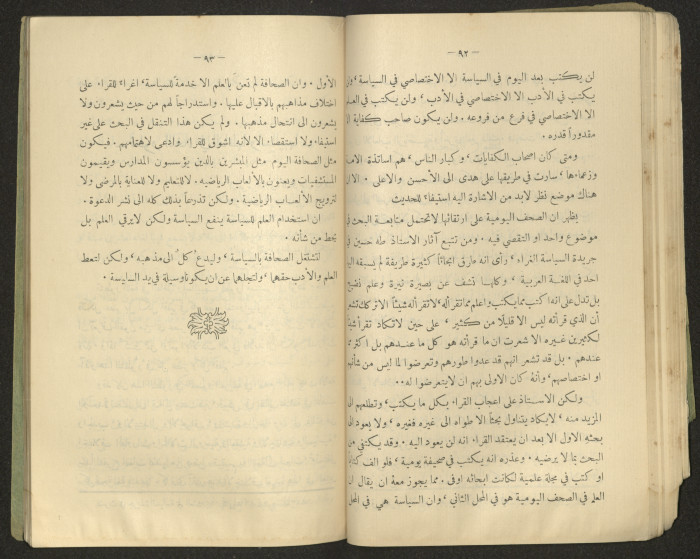 — ٩٢ —
لن يكتب بعد اليوم في السياسة الا الاختصاصي في السياسة ، ولن
يكتب في الأدب الا الاختصاصي في الأدب ، ولن يكتب في العلم
الا الاختصاصي في فرع من فروعه . ولن يكون صاحب كفاية الا
مقدوراً قدره .
ومتى كان اصحاب الكفايات ، وكبار الناس ، هم اساتذة الامة
وزعماءها ، سارت في طريقها على هدى الى الأحسن والاعلى . الا ان
هناك موضع نظر لابد من الاشارة اليه استيفاءً للحديث
يظهر ان الصحف اليومية على ارتقائها لاتحتمل متابعة البحث في
موضوع واحد او التقصي فيه . ومن تتبع آثار الاستاذ طه حسين في
جريدة السياسة الغراء ، رأى انه طرق ابحاثاً كثيرة طريقة لم يسبقه اليها
احد في اللغة العربية ، وكلها تشف عن بصيرة نيرة وعلم نضيج
بل تدل على انه اكتب ممايكتب واعلم مما تقرأ له ، لاتقرأ له شيئاً الا تركك تشعر
أن الذي قرأته ليس الا قليلا من كثير ، على حين لاتكاد تقرأ شيئاً
لكثيرين غيره الا شعرت ان ما قرأته هو كل ما عندهم بل اكثر مما
عندهم . بل قد تشعر انهم قد عدوا طورهم وتعرضوا لما ليس من شأنهم
او اختصاصهم ، وأنه كان الاولى بهم ان لايتعرضوا له ..
ولكن الاستاذ على اعجاب القراء بكل ما يكتب ، وتطلعهم الى
المزيد منه ، لايكاد يتناول بحثاً الا طواه الى غيره فغيره ، ولا يعود الى
بحثه الاول الا بعد ان يعتقد القراء انه لن يعود اليه . وقد يكتفي من
البحث بما لا يرضيه . وعذره انه يكتب في صحيفة يومية ، فلو الف كتاباً
او كتب في مجلة علمية لكانت ابحاثه اوفى . مما يجوز معه ان يقال ان
العلم في الصحف اليومية هو في المحل الثاني ، وان السياسة هي في المحل
— ٩٣ —
الأول . وان الصحافة لم تعنَ بالعلم الا خدمةً للسياسة ، اغراءً للقراء على
اختلاف مذاهبهم بالاقبال عليها . واستدراجاً لهم من حيث يشعرون ولا
يشعرون الى انتحال مذهبها . ولم يكن هذا التنقل في البحث على غير
استيفاء ولا استقصاء الا لانه اشوق للقراء وادعى لاهتمامهم . فيكون
مثل الصحافة اليوم مثل المبشرين بالدين يؤسسون المدارس ويقيمون
المستشفيات ويعنون بالألعاب الرياضية . لا للتعليم ولا للعناية بالمرضى ولا
لترويج الألعاب الرياضية . ولكن تذرعاً بذلك كله الى نشر الدعوة .
ان استخدام العلم للسياسة ينفع السياسة ولكن لايرقي العلم بل
يحط من شأنه .
لتشتغل الصحافة بالسياسة ، وليدعُ كلٌ الى مذهبه ، ولكن لتعط
العلم والأدب حقهما ، ولتجلهما عن ان يكونا وسيلة في يد السياسة .